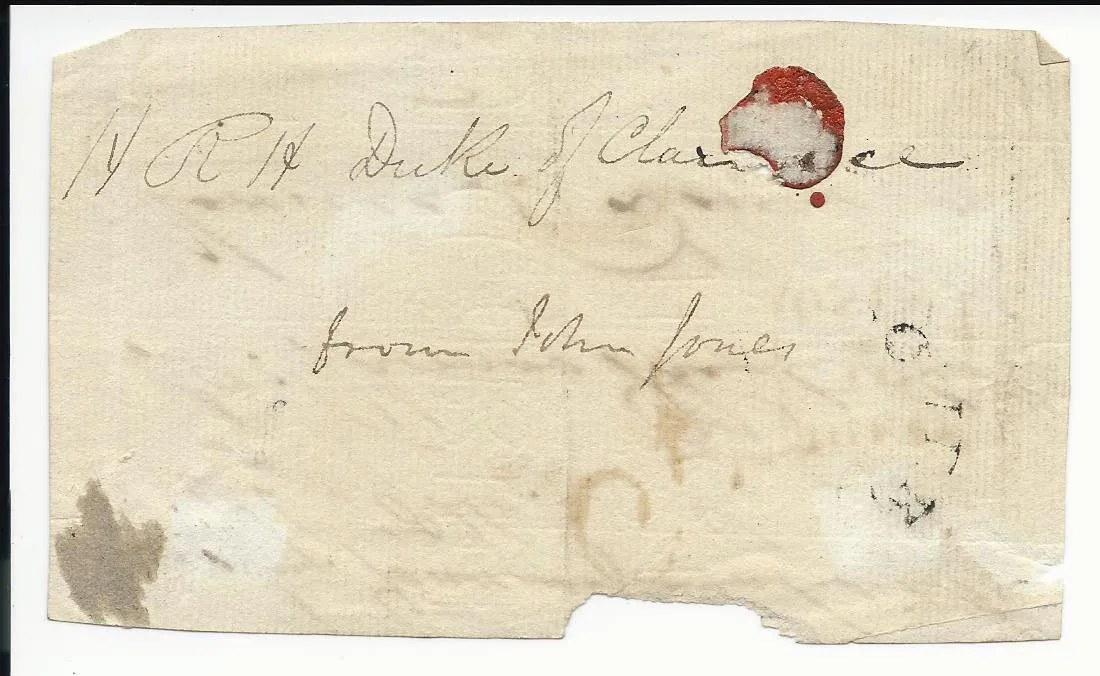 H R H Duke of Clarence
from John Jones